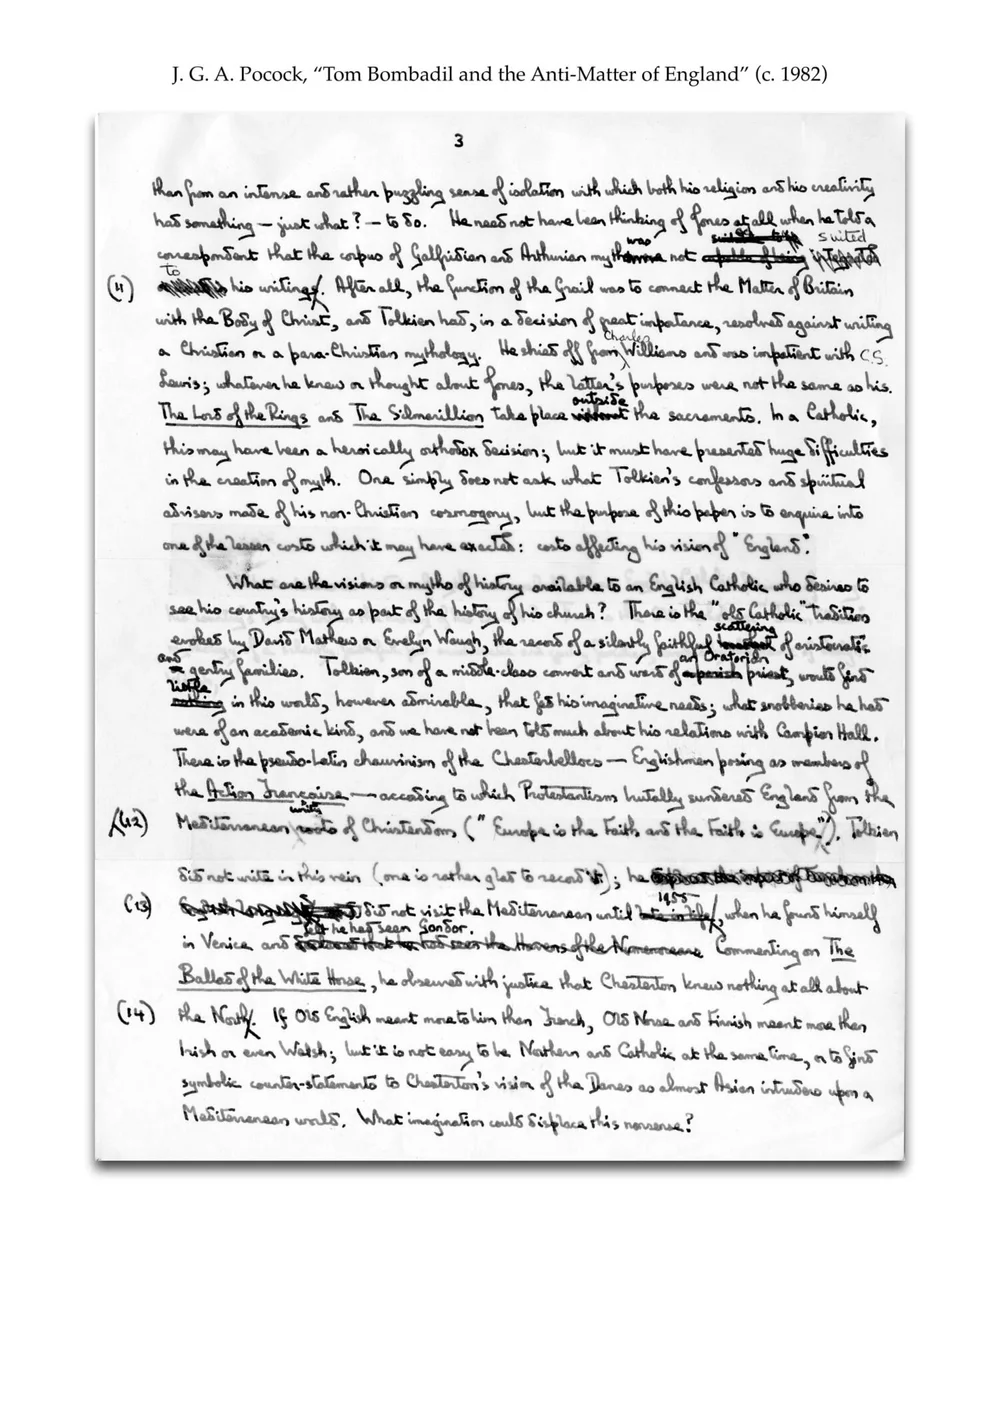 J. G. A. Pocock, “Tom Bombadil and the Anti-Matter of England” (c. 1982)
3
than from an intense and rather puzzling sense of isolation with which both his religion and his creativity
had something — just what? — to do. He need not have been thinking of Jones at all when he told a
was suited
correspondent that the corpus of Galfridian and Arthurian myth not
to
(11) his writings. After all, the function of the Grail was to connect the Matter of Britain
with the Body of Christ, and Tolkien had, in a decision of great importance, resolved against writing
Charles
a Christian or a para-Christian mythology. He shied off from Williams and was impatient with C.S.
Lewis; whatever he knew or thought about Jones, the latter's purposes were not the same as his.
outside
The Lord of the Rings and The Silmarillion take place without the sacraments. In a Catholic,
this may have been a heroically orthodox decision; but it must have presented huge difficulties
in the creation of myth. One simply does not ask what Tolkien's confessors and spiritual
advisers made of his non-Christian cosmogony, but the purpose of this paper is to enquire into
one of the lesser costs which it may have exacted: costs affecting his vision of "England".
What are the visions or myths of history available to an English Catholic who desires to
see his country's history as part of the history of his church? There is the "old Catholic" tradition
scattering
evoked by David Mathew or Evelyn Waugh, the record of a silently faithful of aristocratic
and an Oratorian
gentry families. Tolkien, son of a middle-class convert and ward of a parish priest, would find
little
nothing in this world, however admirable, that fed his imaginative needs; what snobberies he had
were of an academic kind, and we have not been told much about his relations with Campion Hall.
There is the pseudo-Latin chauvinism of the Chesterbellocs — Englishmen posing as members of
the Action Française — according to which Protestantism brutally sundered England from the
unity
(12) Mediterranean roots of Christendom ("Europe is the Faith and the Faith is Europe"). Tolkien
did not write in this vein (one is rather glad to record it); he
1955
(13) did not visit the Mediterranean until late in life, when he found himself
felt he had seen Gondor.
in Venice and believed that he had seen the Havens of the Numenoreans Commenting on The
Ballad of the White Horse, he observed with justice that Chesterton knew nothing at all about
(14) the North. If Old English meant more to him than French, Old Norse and Finnish meant more than
Irish or even Welsh; but it is not easy to be Northern and Catholic at the same time, or to find
symbolic counter-statements to Chesterton's vision of the Danes as almost Asian intruders upon a
Mediterranean world. What imagination could displace this nonsense?